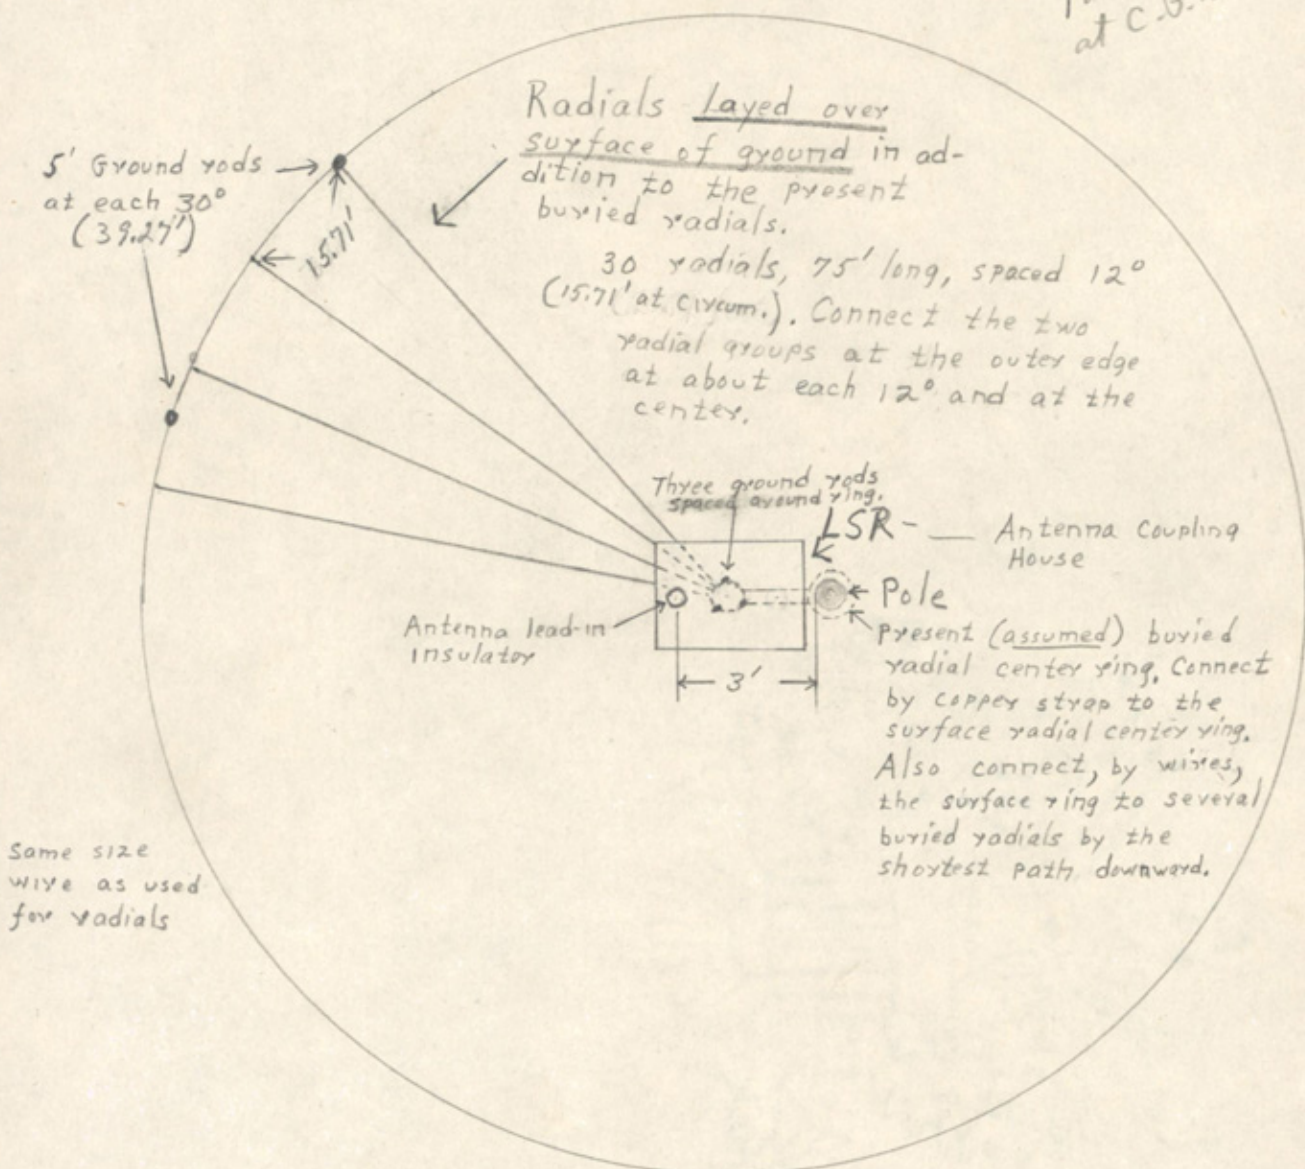 at C.G.
Radials Layed over
surface of ground in ad-
dition to the present
buried radials.
30 radials, 75' long, spaced 12°
(15.71' at circum.). Connect the two
radial groups at the outer edge
at about each 12° and at the
center.
5' Ground rods
at each 30°
(39.27')
15.71'
Three ground rods
spaced around ring.
LSR - Antenna Coupling
House
Pole
Antenna lead-in
insulator
3'
Present (assumed) buried
radial center ring. Connect
by copper strap to the
surface radial center ring.
Also connect, by wires,
the surface ring to several
buried radials by the
shortest path downward.
Same size
wire as used
for radials